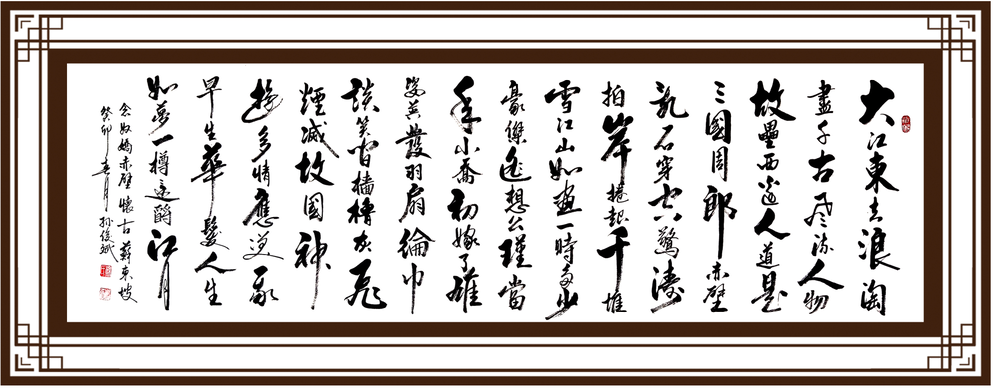 大江東去浪淘
盡千古風流人物
故壘西邊人道是
三國周郎赤壁
亂石穿空驚濤
拍岸捲起千堆
雪江山如畫一時多少
豪傑遙想公瑾當
年小喬初嫁了雄
姿英發羽扇綸巾
談笑間檣櫓灰飛
煙滅故國神
遊多情應笑我
早生華髮人生
如夢一樽還酹江月
念奴嬌赤壁懷古蘇東坡
癸卯春月孫俊斌